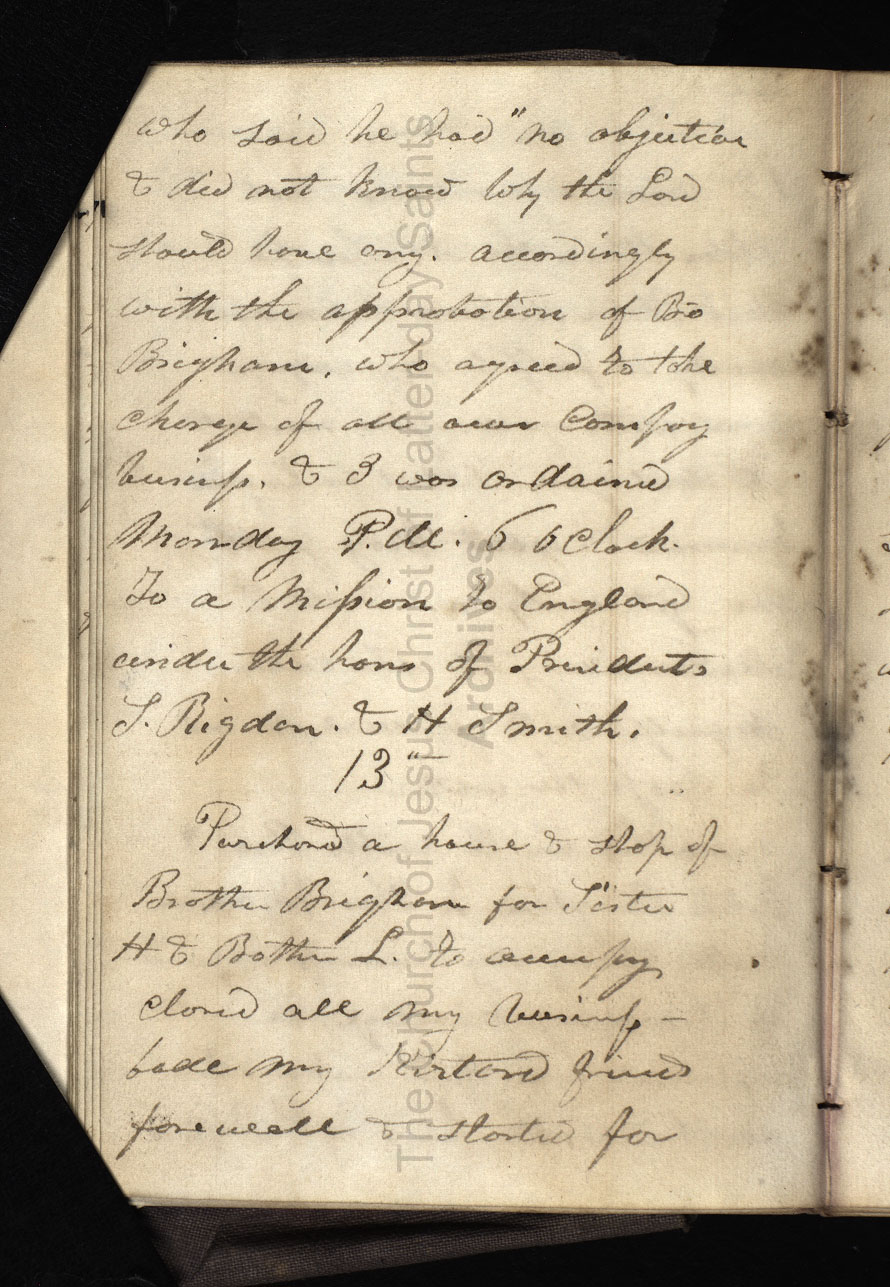 who said he had "no objection
& did not know why the Lord
should have any. accordingly
with the approbation of Bro
Brigham. who agreed to take
charge of all our Company
business. & I was ordained
Monday P.M. 6 oClock.
To a Mission to England
under the hans of Presidents
S. Rigdon. & H Smith.
13th
Purchased a house & shop of
Brother Brigham for Sister
H & Bother L. to occupy
closed all my business –
bade my Kirtland friends
farewell & started for
The Church of Jesus Christ of Latter-day Saints
Archives